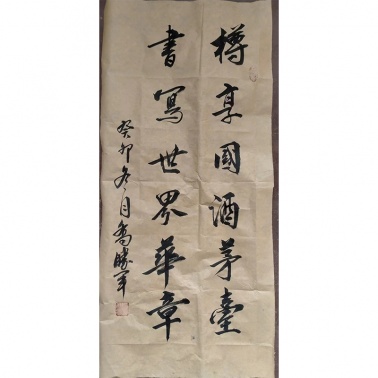 樽享國酒茅臺
書寫世界華章
癸卯冬月喬勝軍